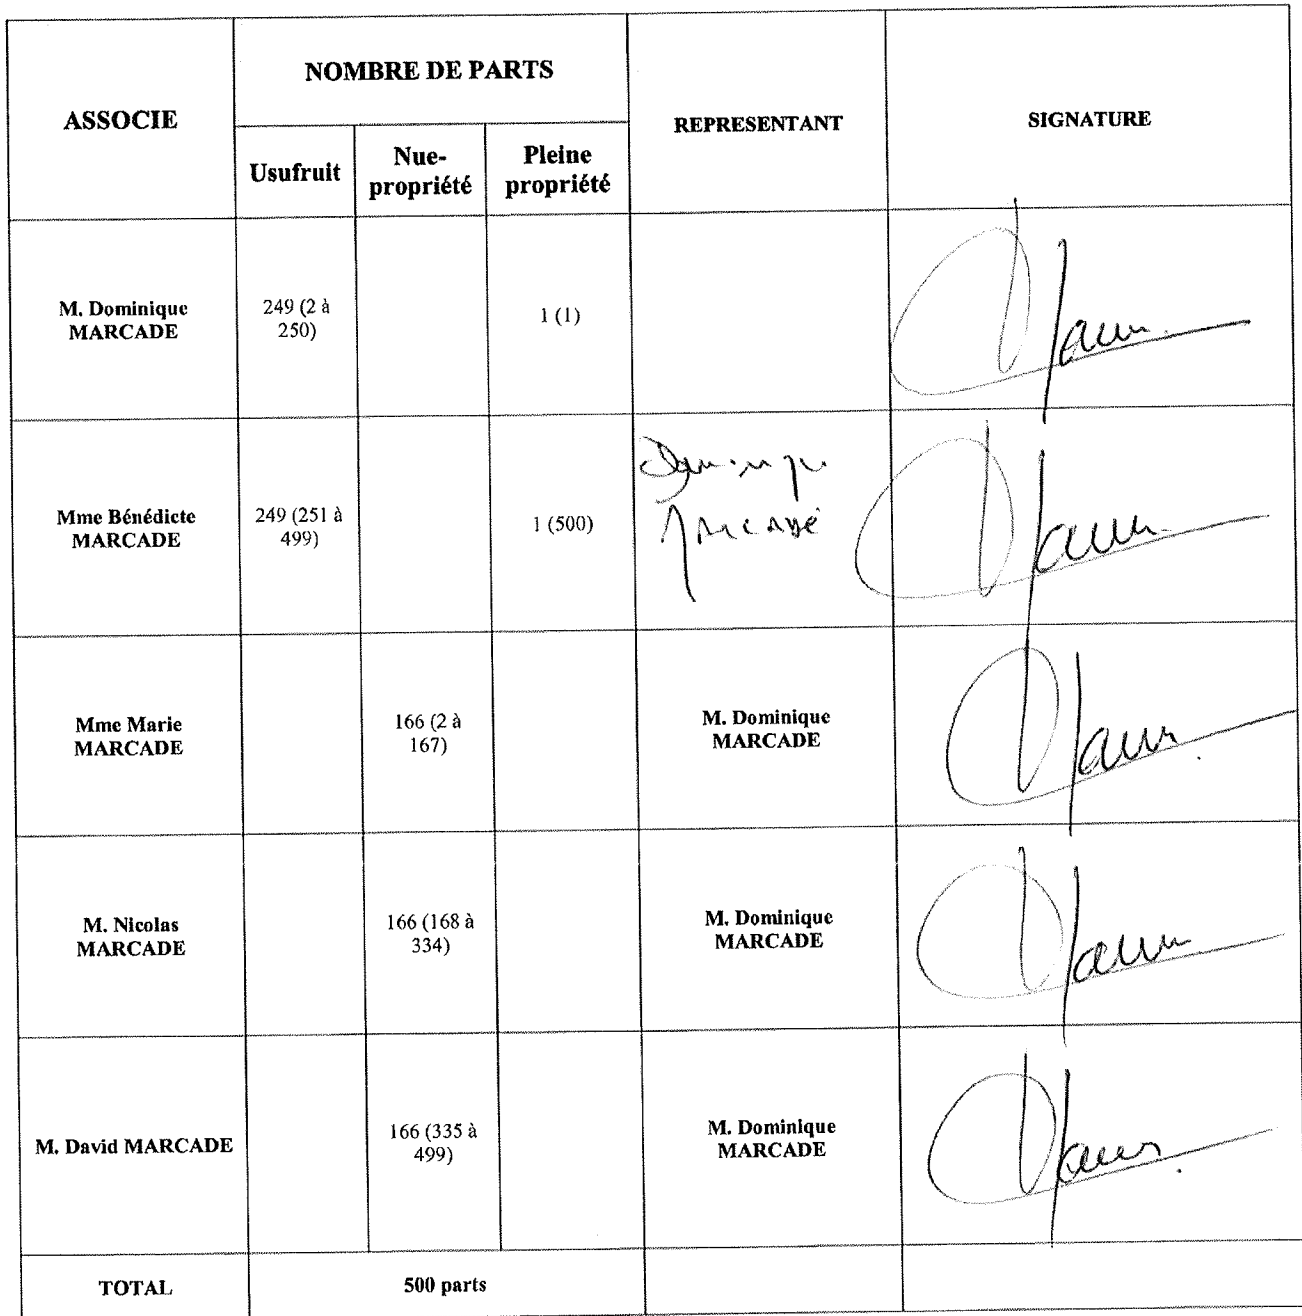 ASSOCIE
NOMBRE DE PARTS
REPRESENTANT
SIGNATURE
Usufruit
Nue-
propriété
Pleine
propriété
M. Dominique
MARCADE
249 (2 à
250)
1 (1)
Mme Bénédicte
MARCADE
249 (251 à
499)
1 (500)
Dominique
MARCADÉ
Mme Marie
MARCADE
166 (2 à
167)
M. Dominique
MARCADE
M. Nicolas
MARCADE
166 (168 à
334)
M. Dominique
MARCADE
M. David MARCADE
166 (335 à
499)
M. Dominique
MARCADE
TOTAL
500 parts